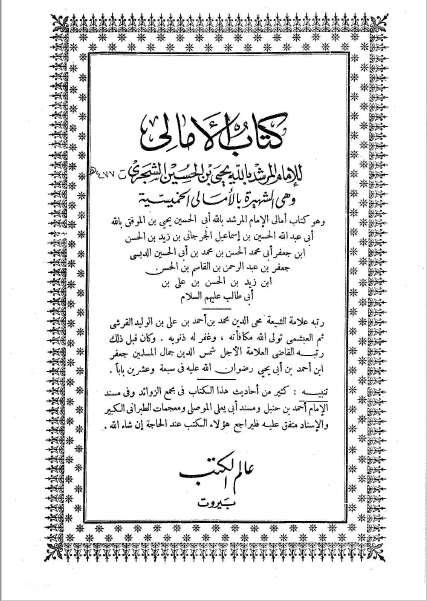 كتاب الأمالى
للإمام المرشد بالله يحيى بن الحسين الشجرى ت
وهى الشهيرة بالأمالى الخميسية
وهو كتاب أمالى الإمام المرشد بالله أبى الحسين يحيى بن الموفق بالله
أبى عبد الله الحسين بن إسماعيل الجرجانى بن زيد بن الحسن
ابن جعفر أبى محمد الحسن بن محمد بن أبى الحسين
جعفر بن عبد الرحمن بن القاسم بن الحسن
ابن زيد بن الحسن بن على بن
أبى طالب عليهم السلام
رتبه علامة الشيعة محى الدين محمد بن أحمد بن على بن الوليد القرشى
ثم العبشمى تولى الله مكافأته ، وغفر له ذنوبه . وكان قبل ذلك
رتبه القاضى العلامة الأجل شمس الدين جمال المسلمين جعفر
ابن احمد بن أبى يحيى رضوان الله عليه فى سبعة وعشرين باباً .
تنبيه : كثير من أحاديث هذا الكتاب فى مجمع الزوائد وفى مسند
الإمام أحمد بن حنبل ومسند أبى يعلى الموصلى ومعجمات الطبرانى الكبير
والإسناد متفق عليه فليراجع هؤلاء الكتب عند الحاجة إن شاء الله .
عالم الكتب
بيروت